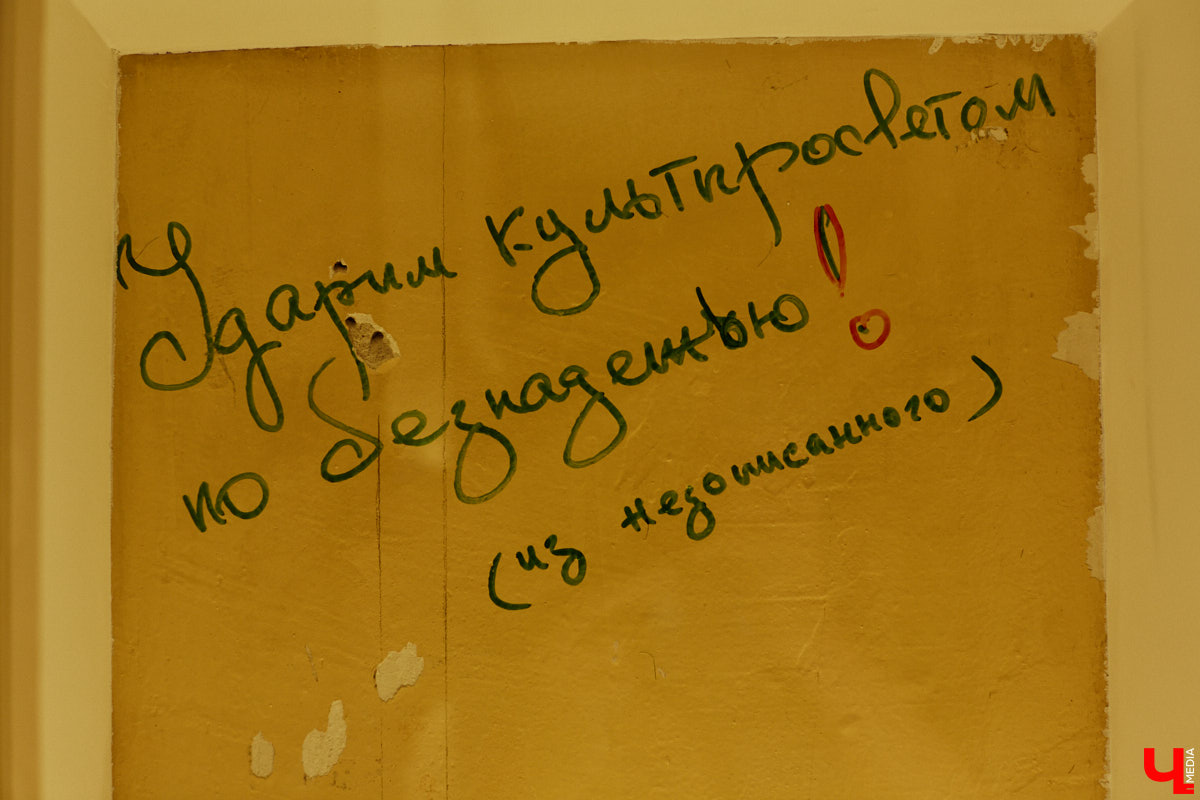 Ударим культпросветом
по безнадежью!
(из недописанного)
Ч MEDIA